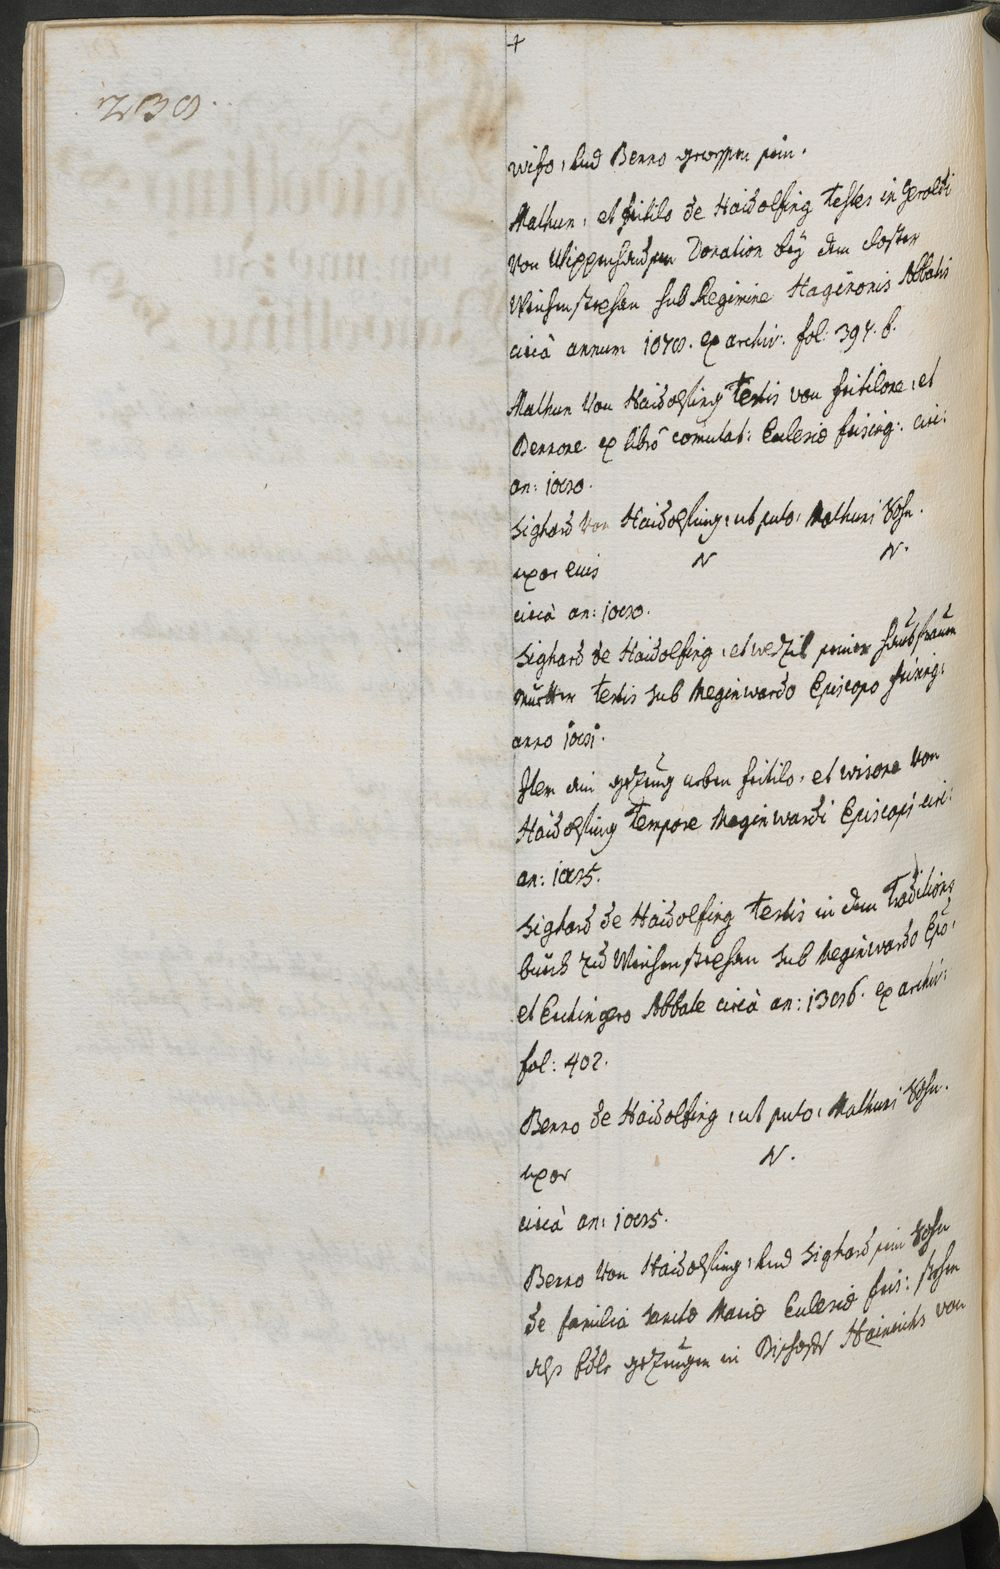 +
239.
wiso, und Benno gewessen sein.
Malhun, et fritilo de Haidolfing testes in Geroldi
von Wippenhausen Donation bey dem closter
Weihenstephan sub Regimine Hagenonis Abbatis
circà annum 1078. ex archiv: fol: 397. b.
Malhun von Haidolfing testis von fritilone, et
Bennone ex libro comutat: Eclesiæ frising: circ:
an: 1080.
Sighard von Haidolfing, ut puto, Malhuni Sohn.
uxor eius N N.
circà an: 1080.
Sighard de Haidolfing, et wezil seiner hausfrauen
mutter testis sub Meginwardo Episcopo frising:
anno 1081.
Item ein gezeug neben fritilo, et wisone von
Haidolfing tempore Meginwardi Episcopi circ:
an: 1085.
Sighard de Haidolfing testis in dem Traditions
buch zu Weihenstephan sub Meginwardo Epõ,
et Erchingero Abbate circà an: 1386. ex archiv:
fol: 402.
Benno de Haidolfing, ut puto, Malhuni Sohn.
uxor N.
circà an: 1085.
Benno von Haidolfing, und Sighard sein Sohn
de familia sanctæ Mariæ Eclesiæ fris: stehen
als gezeugen in Bischoffs Hainrichs von